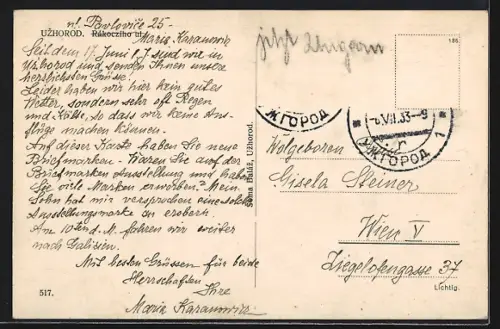 ul. Pavloviče 25-
UŽHOROD. Rákocziho ul.
Maria Karanowic
Seit dem 17. Juni l. J. sind wir in
Užhorod und senden Ihnen unsere
herzlichsten Grüsse!
Leider haben wir hier kein gutes
Wetter, sondern sehr oft Regen
und Kälte, so dass wir keine Aus-
flüge machen können.
Auf dieser Karte haben Sie neue
Briefmarken - Waren Sie auf der
Briefmarken Ausstellung und haben
Sie viele Marken erworben? Mein
Sohn hat mir versprochen eine solche
Ausstellungsmarke zu erobern.
Am 10ten d. M. fahren wir weiter
nach Galizien.
Mit besten Grüssen für beide
Herrschaften
Ihre
Maria Karanowicz
517.
Soma Baláž, Užhorod.
jetzt Ungarn
ЖГОРОД
-6.VII.33-9
УЖГОРОД 1
Wolgeboren
Gisela Steiner
Wien V
Ziegelofengasse 37
Lichtig.